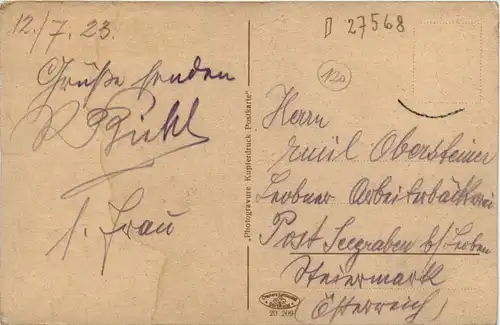 12./7. 23.
Grüße senden
R Bickl
s. Frau
"Photogravure Kupferdruck Postkarte"
D 27568
120
Herrn
Emil Obersteiner
Leobner Arbeiterbäckerei
Post Seegraben b/Leoben
Steiermark
(Österreich)
20 209